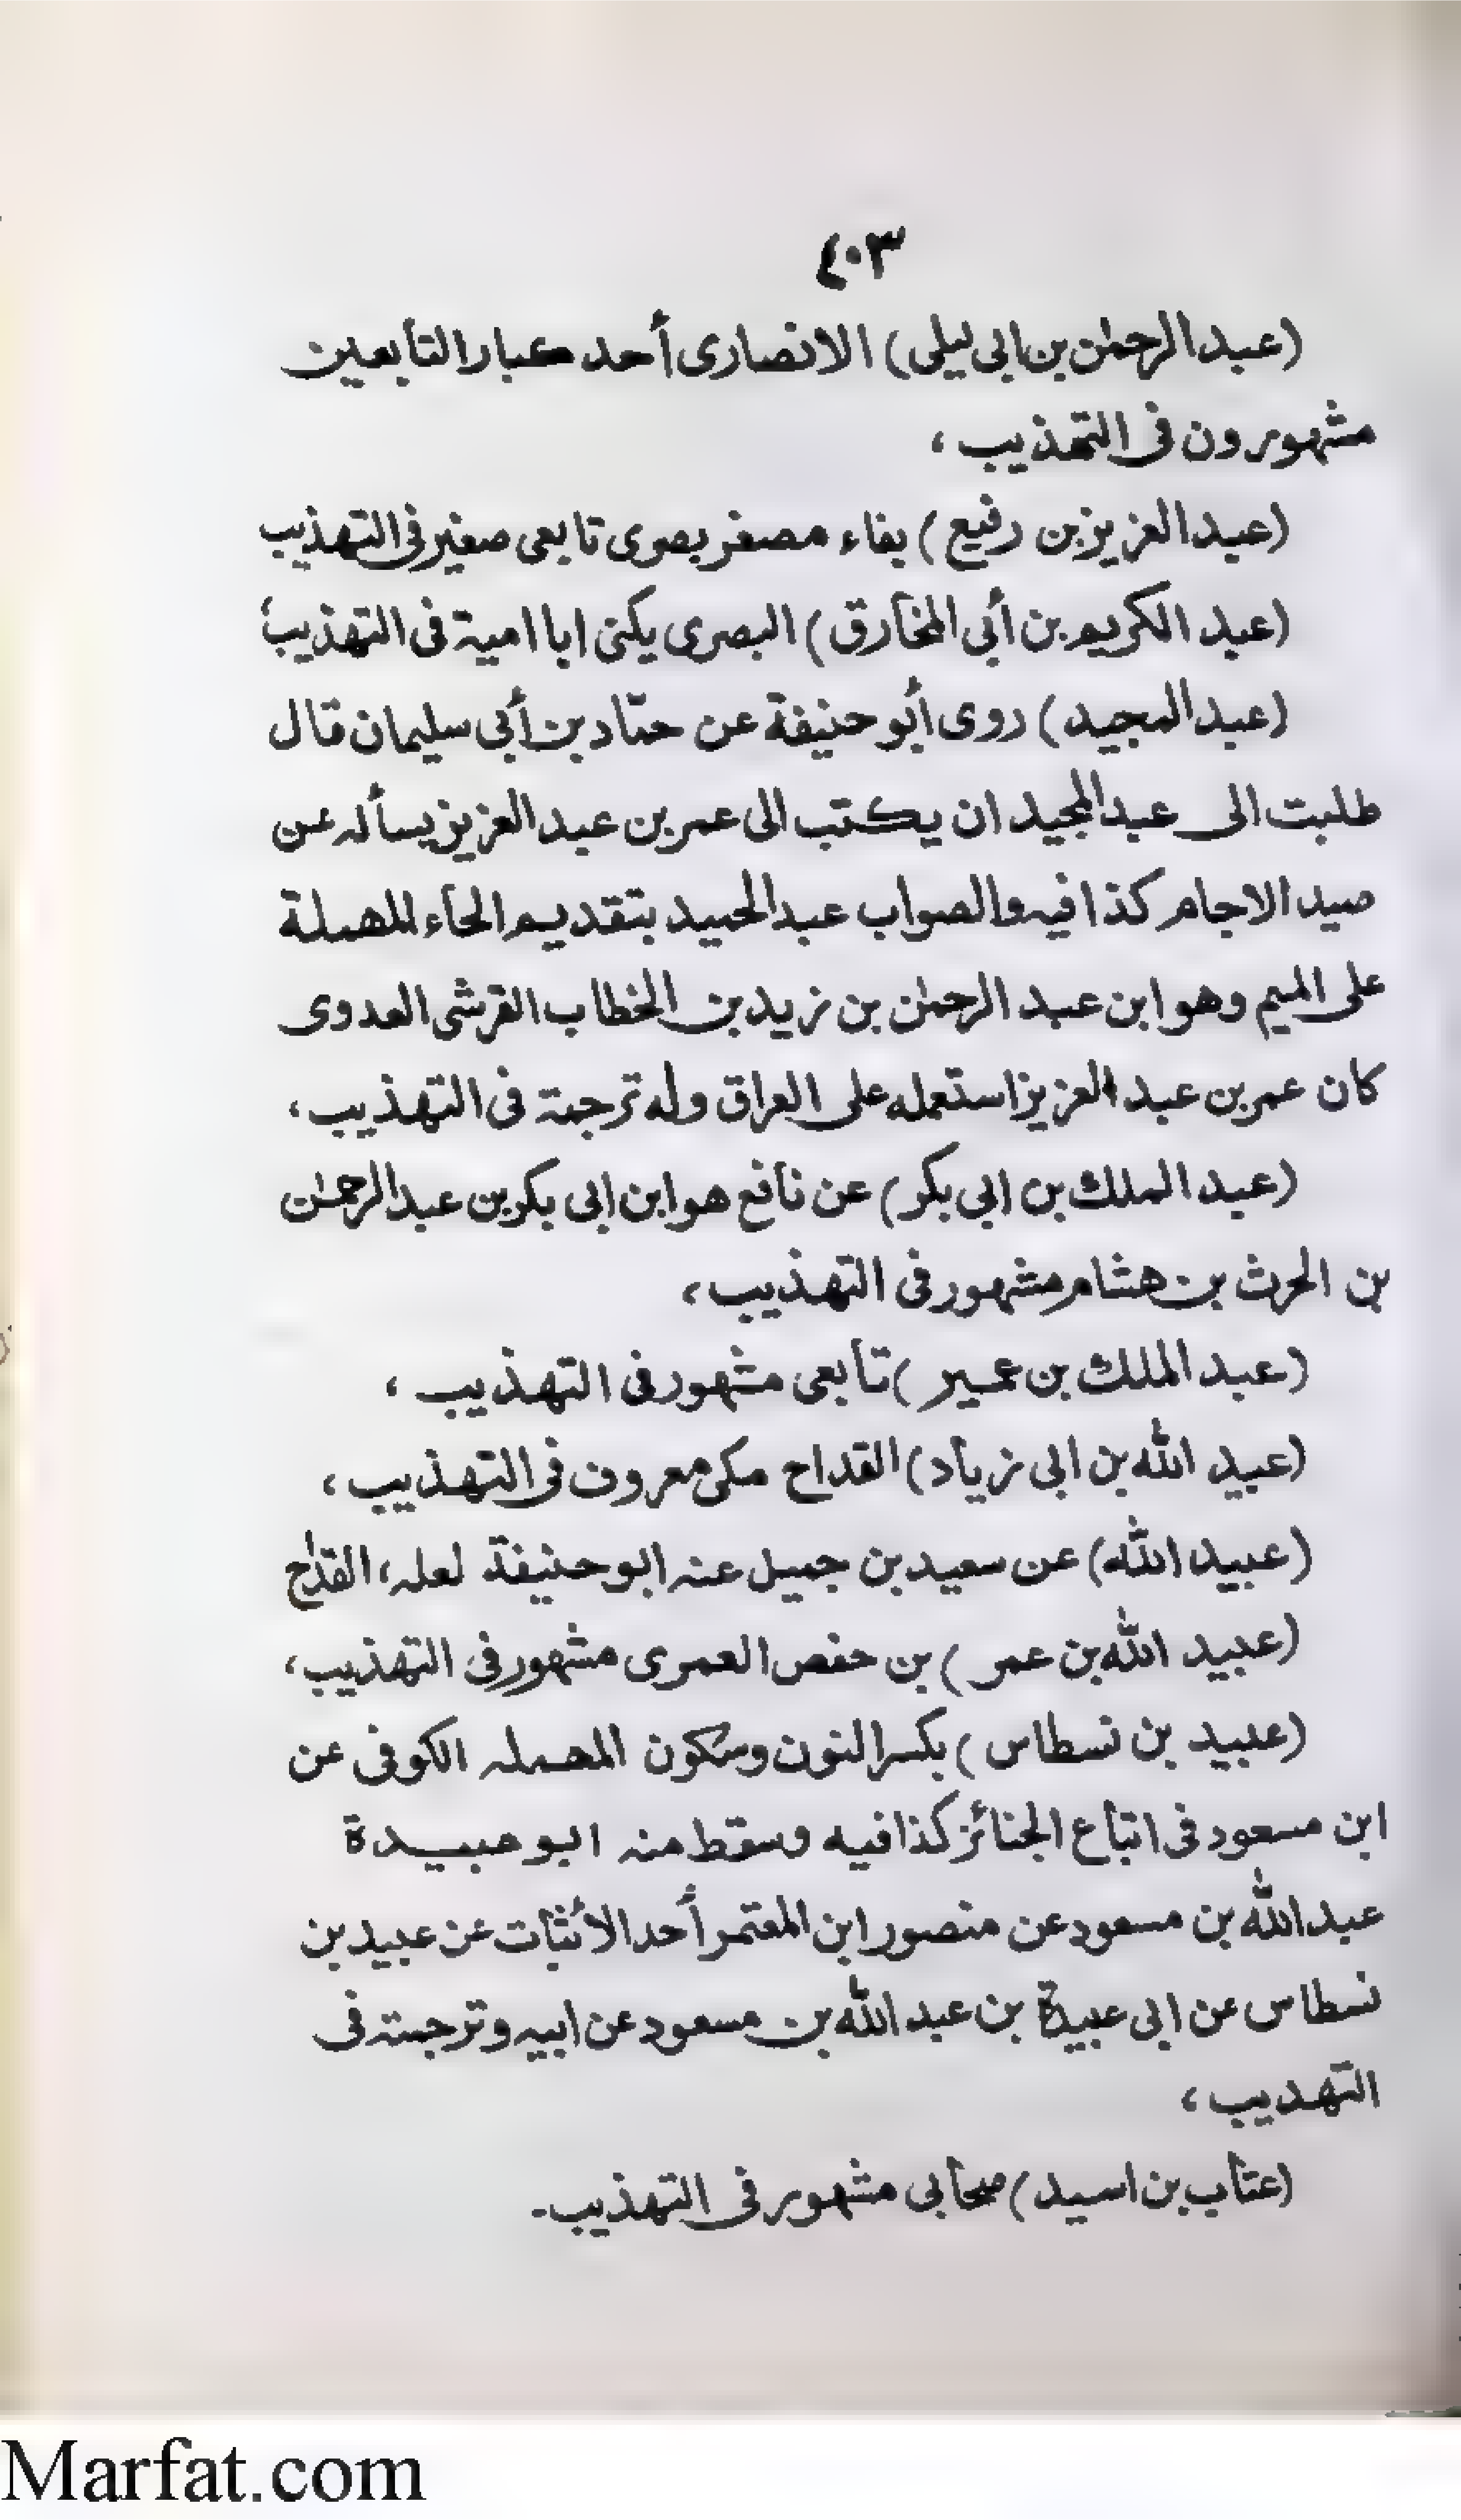 ٤٠٣
(عبد الرحمٰن بن ابی لیلی) الانصاری أحد کبار التابعین
مشهورون فی التهذیب،
(عبد العزیز بن رفیع) بفاء مصغر بصری تابعی صغیر فی التهذیب
(عبد الکریم بن أبی المخارق) البصری یکنی ابا امیة فی التهذیب،
(عبد المجید) روی أبو حنیفة عن حمّاد بن أبی سلیمان قال
طلبت الی عبد المجید ان یکتب الی عمر بن عبد العزیز یسألہ عن
صید الاجام کذا فیہ والصواب عبد الحمید بتقدیم الحاء المهملة
علی المیم وهو ابن عبد الرحمٰن بن زید بن الخطاب القرشی العدوی
کان عمر بن عبد العزیز استعمله علی العراق وله ترجمة فی التهذیب،
(عبد الملك بن ابی بکر) عن نافع هو ابن ابی بکر بن عبد الرحمٰن
بن الحرث بن هشام مشهور فی التهذیب،
(عبد الملك بن عمیر) تابعی مشهور فی التهذیب،
(عبید الله بن ابی زیاد) القداح مکی معروف فی التهذیب،
(عبید الله) عن سعید بن جمیل عنہ ابو حنیفة لعلہ، القداح
(عبید الله بن عمر) بن حفص العمری مشهور فی التهذیب،
(عبید بن نسطاس) بکسر النون وسکون المهملہ الکوفی عن
ابن مسعود فی اتباع الجنائز کذا فیه وسقط منہ ابو عبیدة
عبد الله بن مسعود عن منصور ابن المعتمر أحد الأثبات عن عبید بن
نسطاس عن ابی عبیدة بن عبد الله بن مسعود عن ابیہ وترجمتہ فی
التهدیب،
(عتاب بن اسید) صحابی مشهور فی التهذیب۔
Marfat.com